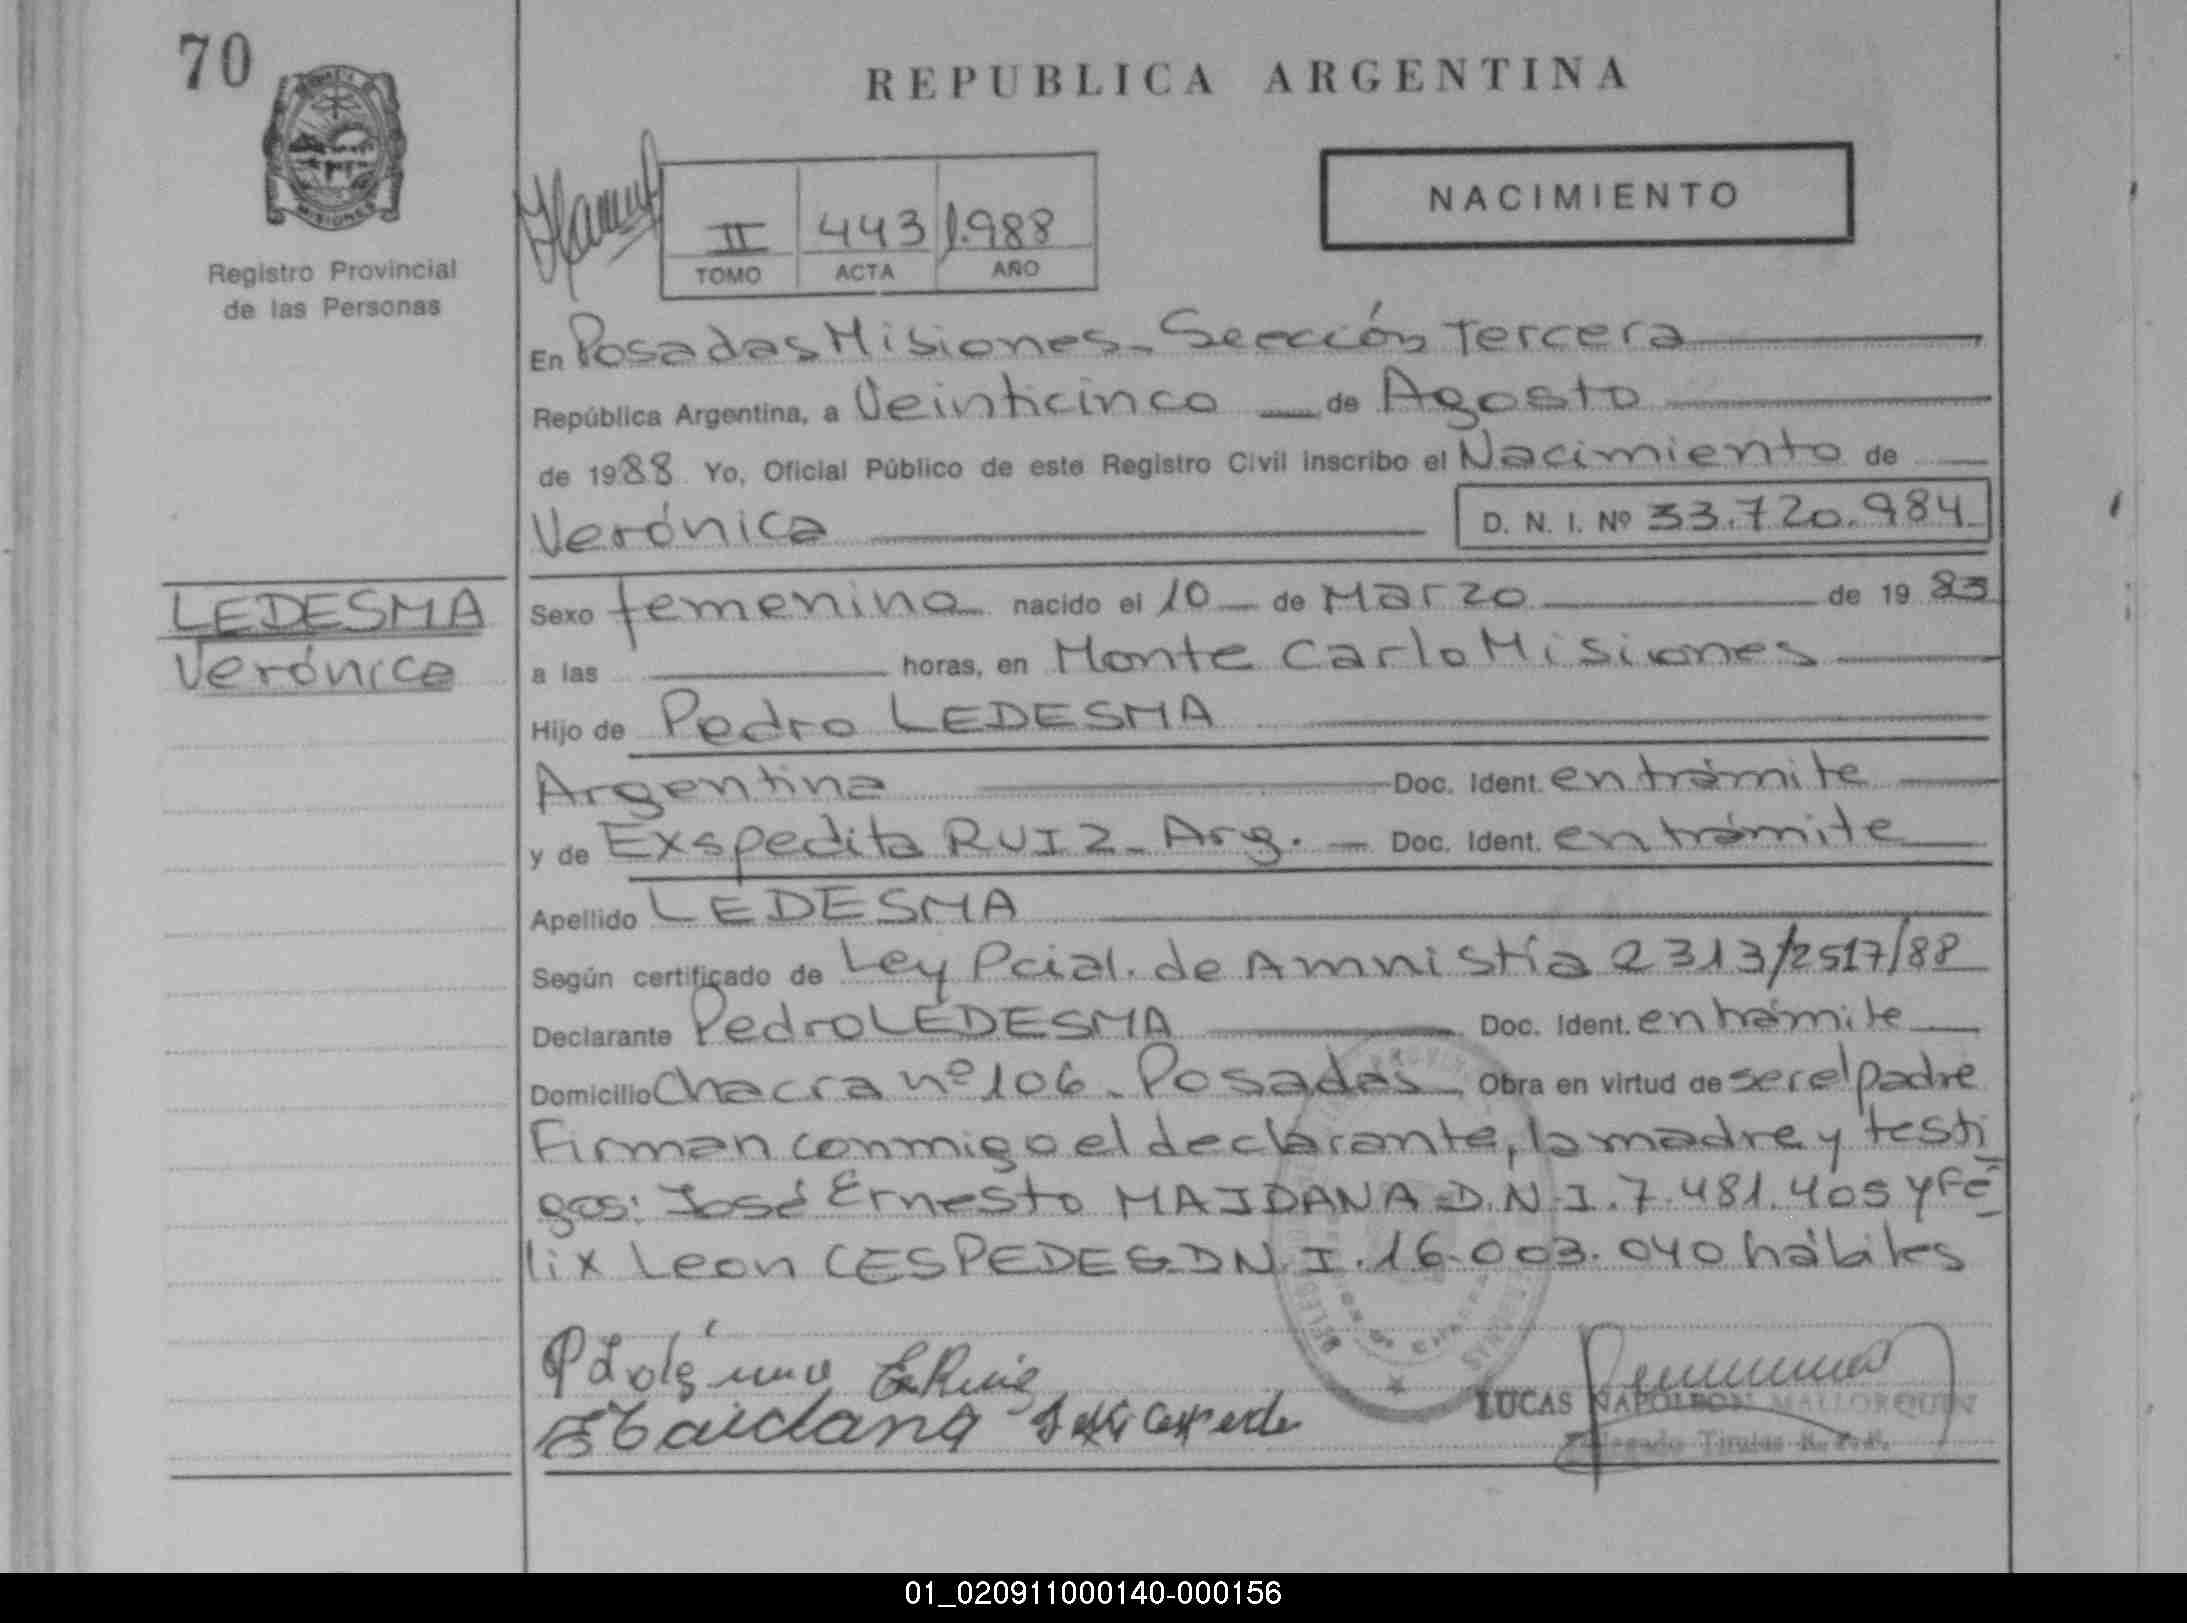 70
REPUBLICA ARGENTINA
MISIONES
Registro Provincial
de las Personas
II 443 1.988
TOMO ACTA AÑO
NACIMIENTO
En Posadas Misiones - Sección Tercera
República Argentina, a Veinticinco de Agosto
de 1988 Yo, Oficial Público de este Registro Civil inscribo el Nacimiento de
Verónica D. N. I. Nº 33.720.984
LEDESMA
Verónica
Sexo femenino nacido el 10 de Marzo de 19 83
a las horas, en Monte Carlo Misiones
Hijo de Pedro LEDESMA
Argentina Doc. Ident. en trámite
y de Exspedita RUIZ - Arg. - Doc. Ident. en trámite
Apellido LEDESMA
Según certificado de Ley Pcial. de Amnistía 2313/2517/88
Declarante Pedro LEDESMA Doc. Ident. en trámite
Domicilio Chacra nº 106 - Posadas Obra en virtud de ser el padre
Firman conmigo el declarante, la madre y testi
gos: José Ernesto MAIDANA D.N.I. 7.481.405 y Fé
lix Leon CESPEDES D.N.I. 16.003.040 hábiles
E Ruiz
Maidana
LUCAS NAPOLEON MALLORQUIN
Delegado Titular R. P. P.
01_020911000140-000156